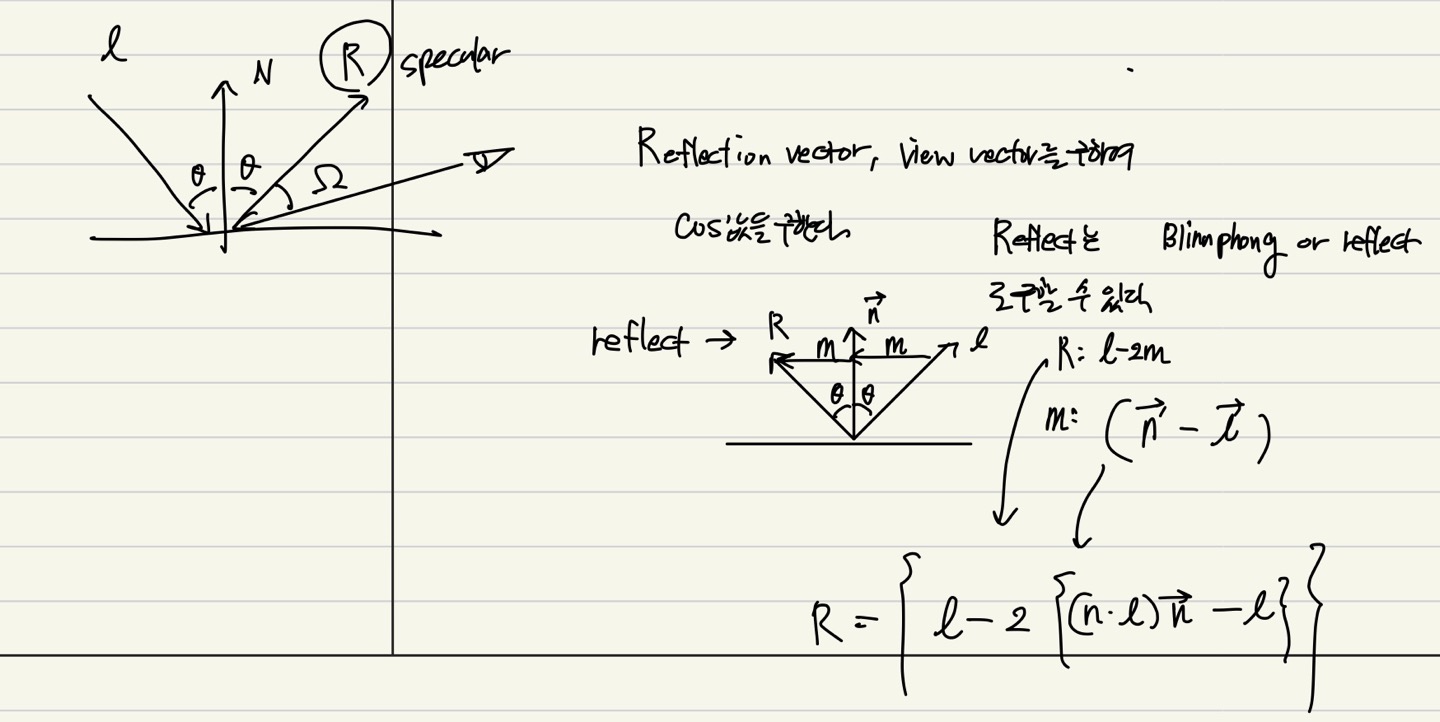 l
N
R specular
θ θ Ω
Reflection vector, view vector를 구하여
cos값을 구한다
Reflect는 Blinnphong or reflect
로 구할 수 있다
reflect → R m n⃗ m l
θ θ
R: l-2m
m: (n⃗ - l⃗)
R = { l - 2 {(n·l)n⃗ - l} }